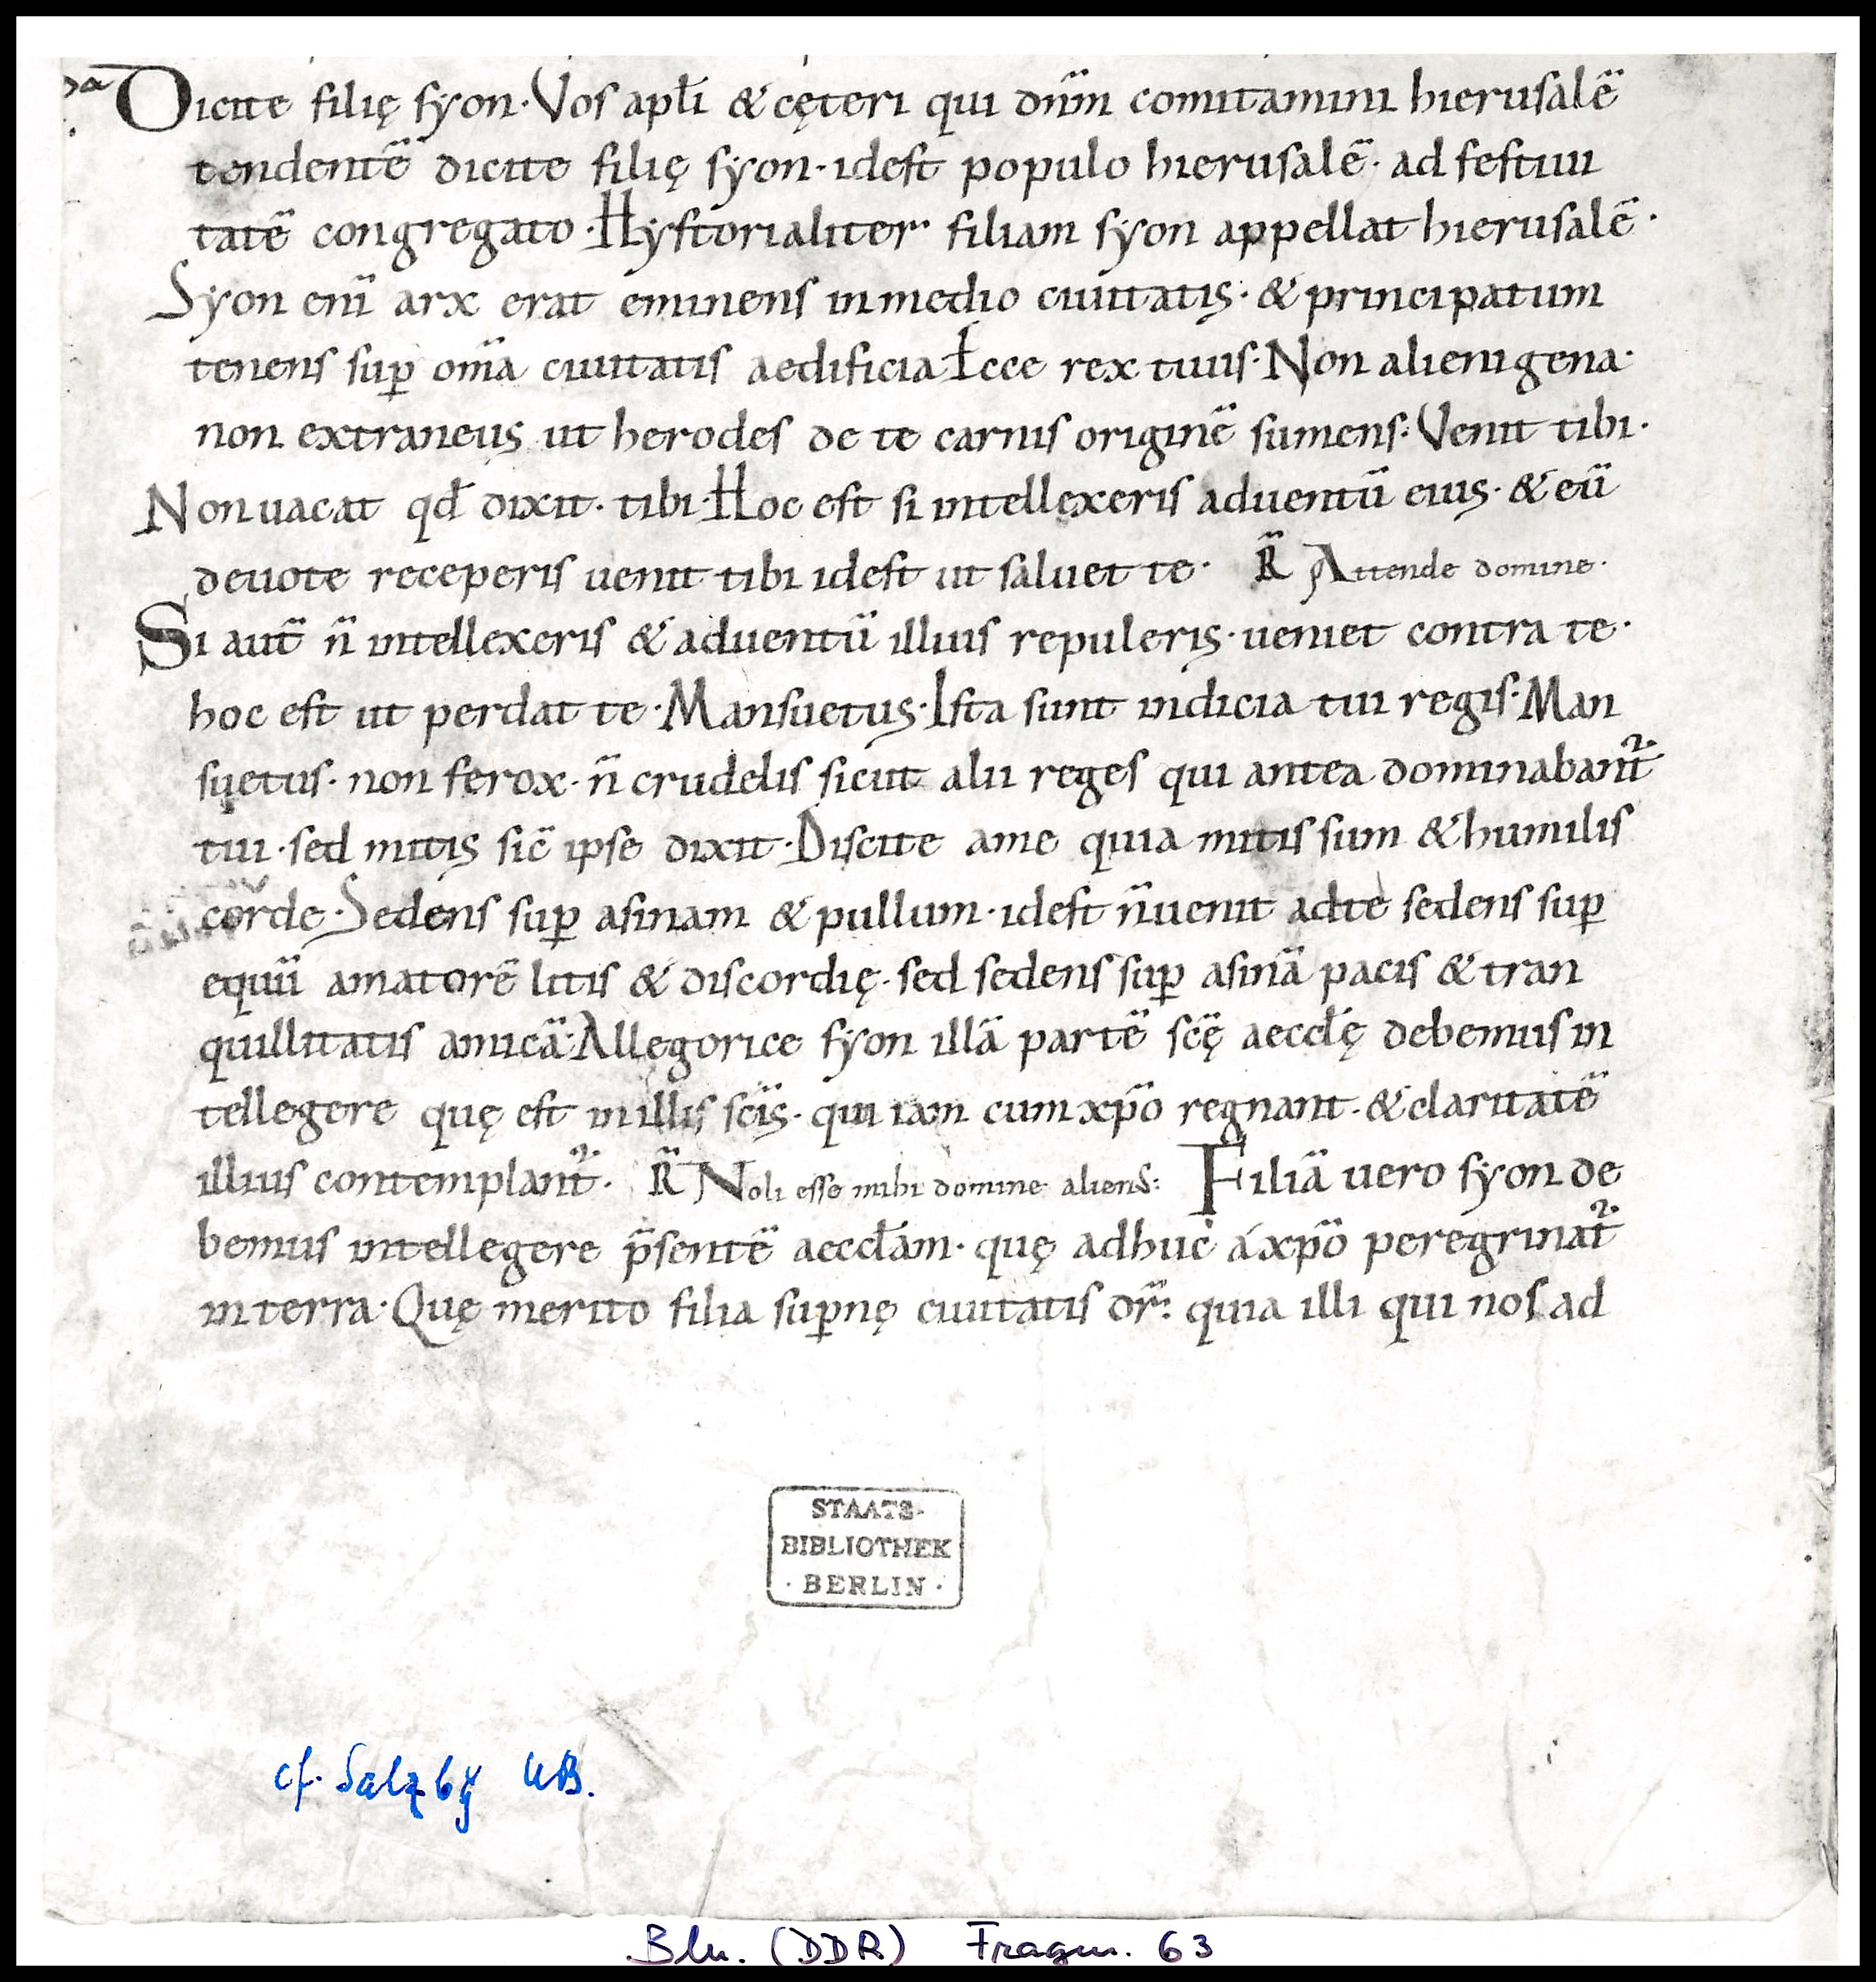 da Dicite filię syon· Vos apłi & cęteri qui dn̄m comitamini hierusalē
tendentē dicite filię syon· idest populo hierusalē· ad festiui
tatē congregato· Hystorialiter filiam syon appellat hierusalē·
Syon eni̅ arx erat eminens inmedio ciuitatis· & principatum
tenens sup̱ om̄a ciuitatis aedificia· Ecce rex tuus· Non alienigena·
non extraneus ut herodes de te carnis originē sumens· Venit tibi·
Non uacat qđ dixit· tibi· Hoc est si intellexeris aduentū eius· & eū
deuote receperis uenit tibi idest ut saluet te· R̄ Attende domine·
Si aut̄ n̄ intellexeris & aduentū illius repuleris· ueniet contra te·
hoc est ut perdat te· Mansuetus· Ista sunt indicia tui regis· Man
suetus· non ferox· n̄ crudelis sicut alii reges qui antea dominabant᷑
tui· sed mitis sic̄ ipse dixit· Discite ame quia mitis sum & humilis
corde· Sedens sup̱ asinam & pullum· idest n̄ uenit adte sedens sup̱
equū amatorē litis & discordię· sed sedens sup̱ asinā pacis & tran
quillitatis amicā· Allegorice syon illā partē scę̄ aeccłę debemus in
tellegere quę est in illis sc̄is· qui iam cum xp̄o regnant· & claritatē
illius contemplant᷑· R̄ Noli esse mihi domine alienꝰ: Filiā uero syon de
bemus intellegere p̄sentē aeccłam· quę adhuc á xp̄o peregrinat᷑
in terra· Quę merito filia sup̱nę ciuitatis or̄: quia illi qui nos ad
STAATS-
BIBLIOTHEK
· BERLIN ·
cf. Salzbg UB.
Bln. (DDR) Fragm. 63